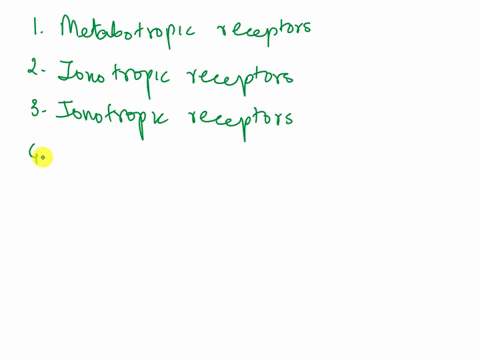 1. Metabotropic receptors
2- Ionotropic receptors
3- Ionotropic receptors
4.